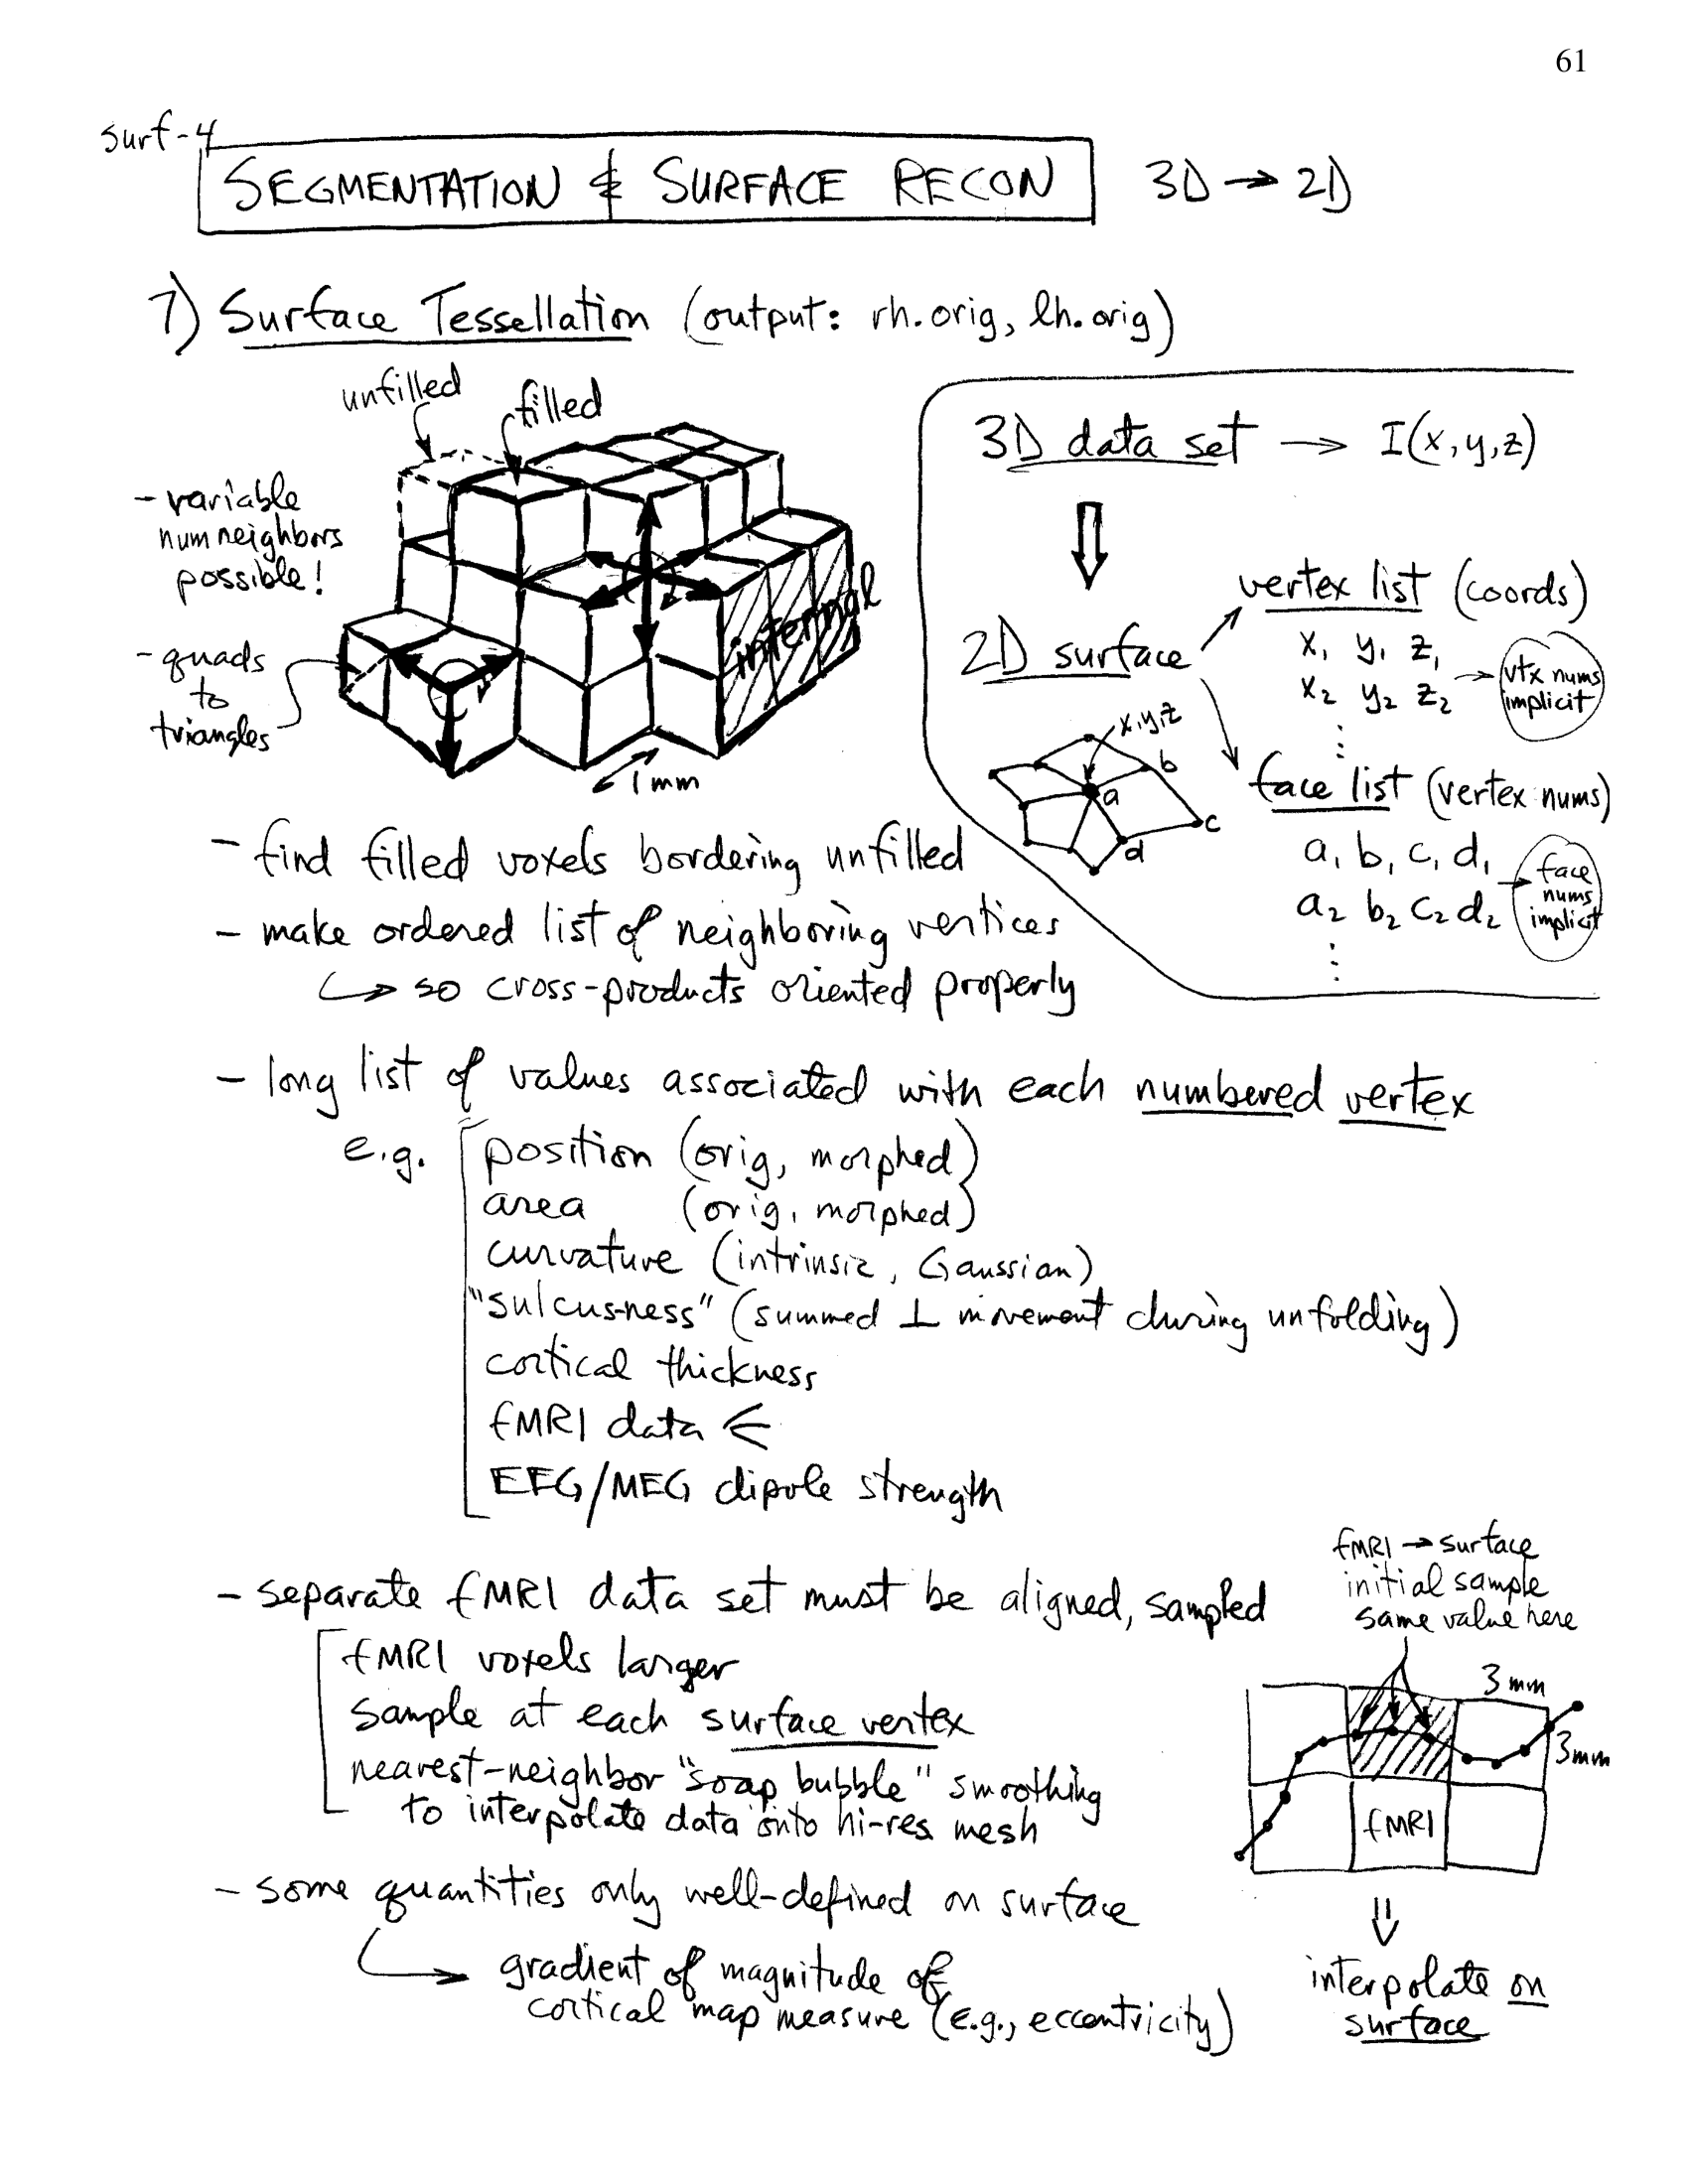 61
surf-4
SEGMENTATION & SURFACE RECON 3D → 2D
7) Surface Tessellation (output: rh.orig, lh.orig)
unfilled
filled
- variable
num neighbors
possible!
- quads
to
triangles
internal
1mm
3D data set → I(x,y,z)
⇓
2D surface
vertex list (coords)
x₁ y₁ z₁
x₂ y₂ z₂
⋮
→ vtx nums
implicit
x,y,z
a
b
c
d
face list (vertex nums)
a₁ b₁ c₁ d₁
a₂ b₂ c₂ d₂
⋮
→ face
nums
implicit
- find filled voxels bordering unfilled
- make ordered list of neighboring vertices
↳ so cross-products oriented properly
- long list of values associated with each numbered vertex
e.g. position (orig, morphed)
area (orig, morphed)
curvature (intrinsic, Gaussian)
"sulcus-ness" (summed ⊥ movement during unfolding)
cortical thickness
fMRI data ⋲
EEG/MEG dipole strength
- separate fMRI data set must be aligned, sampled
fMRI voxels larger
sample at each surface vertex
nearest-neighbor "soap bubble" smoothing
to interpolate data onto hi-res mesh
- some quantities only well-defined on surface
↳ gradient of magnitude of
cortical map measure (e.g., eccentricity)
fMRI → surface
initial sample
same value here
3mm
3mm
fMRI
⇓
interpolate on
surface